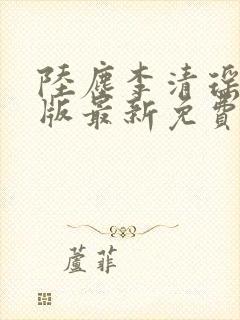 陸塵李清瑤
版最新免費
蘆菲